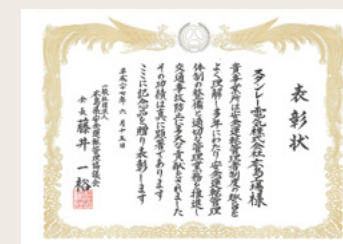 表彰状
スタンレー電気株式会社広島工場様
貴事業所は安全運転管理者制度の趣旨を
よく理解し多年にわたり安全運転管理
体制の整備と適切な管理業務を推進し
交通事故防止に多大な貢献をされました
その功績は真に顕著であります
ここに記念品を贈り表彰します
平成二十七年 六月十五日
一般社団法人
広島県安全運転管理協議会
会長 藤井 一裕